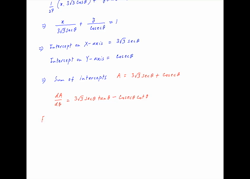 1/27 (x, 3√3 cosθ) +
⇒ x/(3√3 secθ) + y/cosecθ = 1
⇒ Intercept on X-axis = 3√3 secθ
Intercept on Y-axis = cosecθ
⇒ Sum of intercepts A = 3√3 secθ + cosecθ
dA/dθ = 3√3 secθ tanθ - cosecθ cotθ